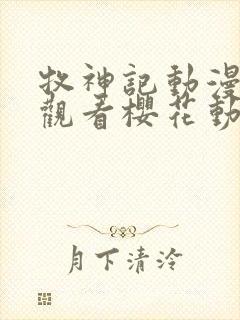 牧神記動漫
觀看櫻花動
月下清泠